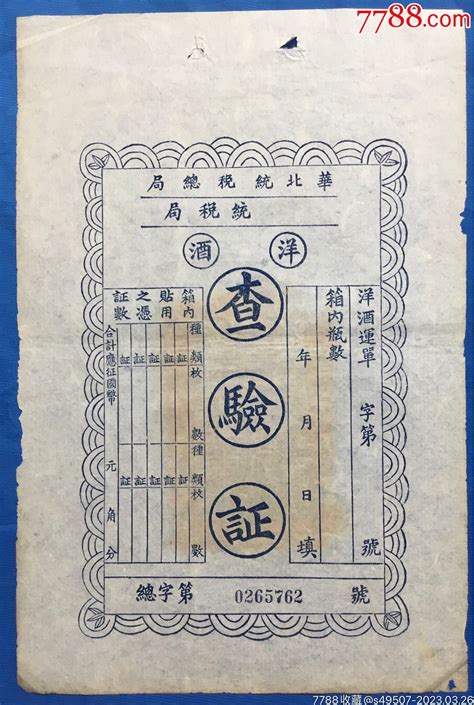 7788.com
華北統税總局
統税局
洋酒
查驗証
洋酒運單 字第 號
箱內瓶數
年 月 日填
箱內貼用之憑証數
種類 枚數 種類 枚數
証 証 証 証 証
証 証 証 証 証
合計應征國幣 元 角 分
總字第 0265762 號
7788收藏@s49507-2023.03.26